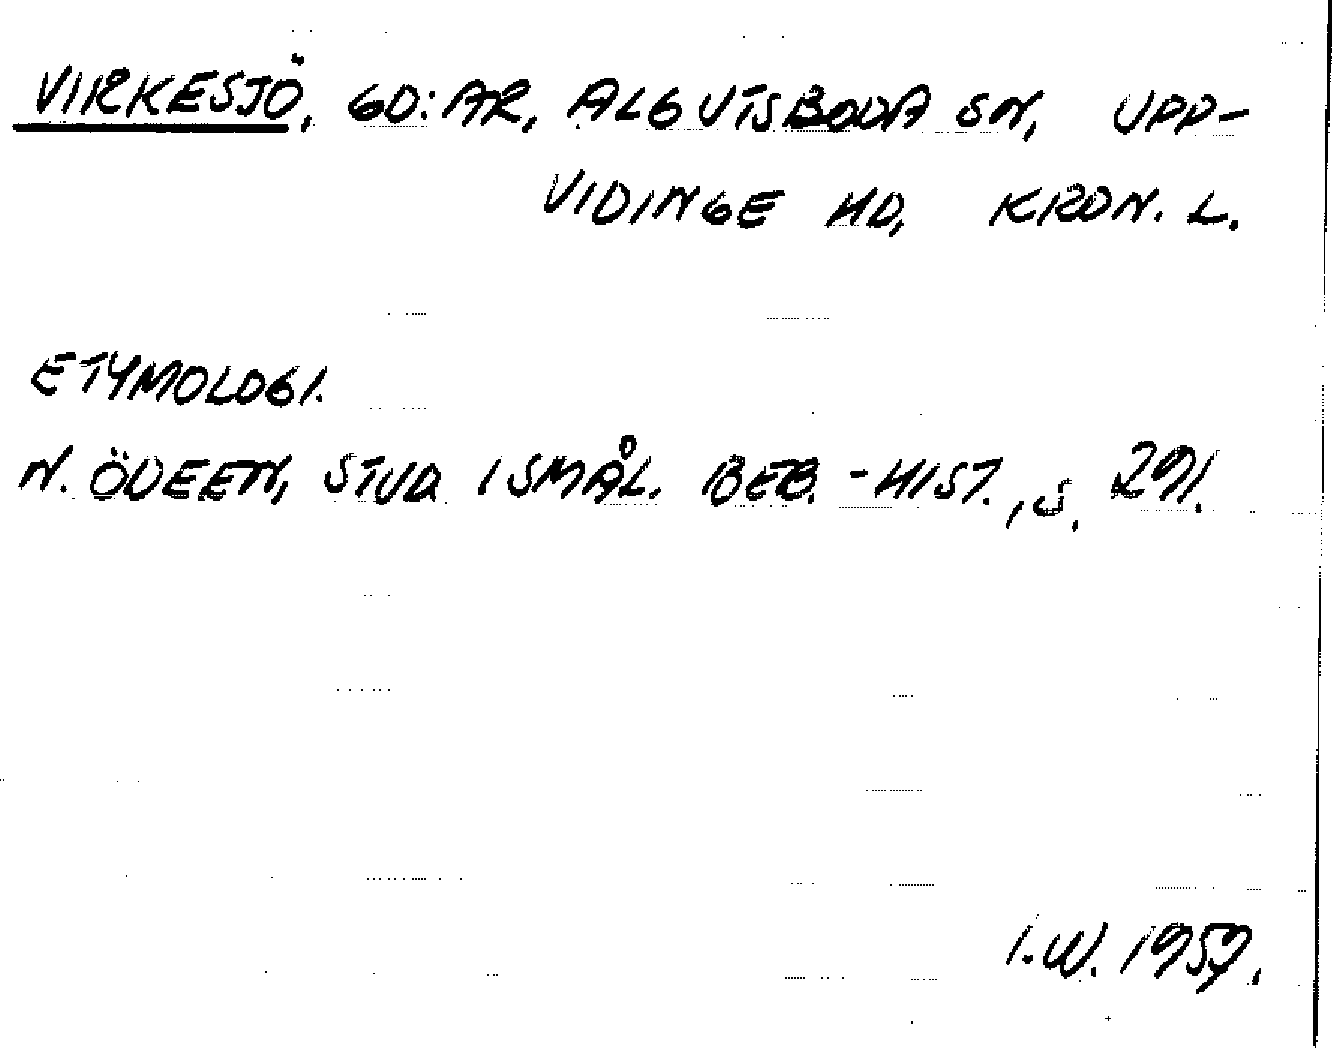 VIRKESJÖ, GD:AR, ALGUTSBODA SN, UPP-
VIDINGE HD, KRON. L.
ETYMOLOGI.
N. ÖDEEN, STUD I SMÅL. BEB.-HIST., S. 291.
I.W. 1959.